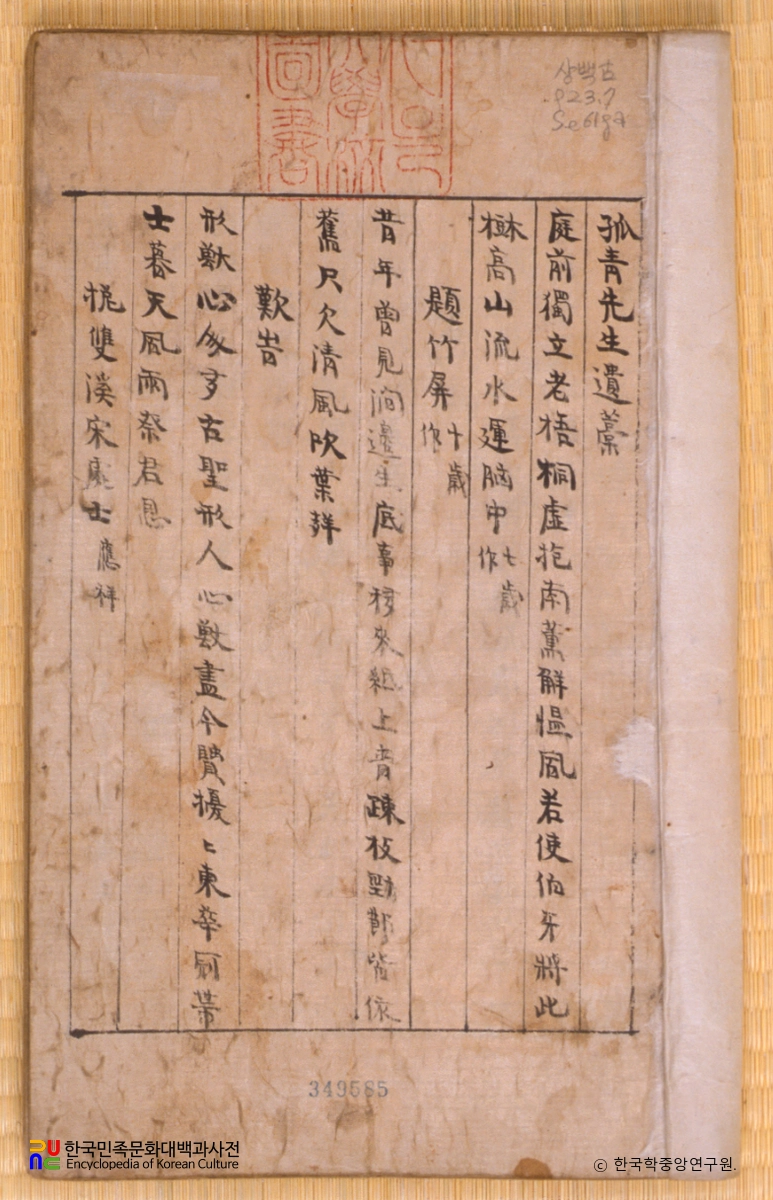 서울
大學校
圖書
상백古
923.7
Se61ga
孤青先生遺藁
庭前獨立老梧桐虛抱南薰解慍風若使伯牙將此
高山流水運胸中 七歲作
題竹屏 十歲作
昔年曾見澗邊生底事移來紙上青疎枝勁節皆依
舊只欠清風吹葉聲
歎旹
形獸心人多古聖形人心獸盡今賢擾〻東華冠帶
士暮天風雨奈君恩
挽雙溪宋處士 應祥
349585
한국민족문화대백과사전
Encyclopedia of Korean Culture
© 한국학중앙연구원.